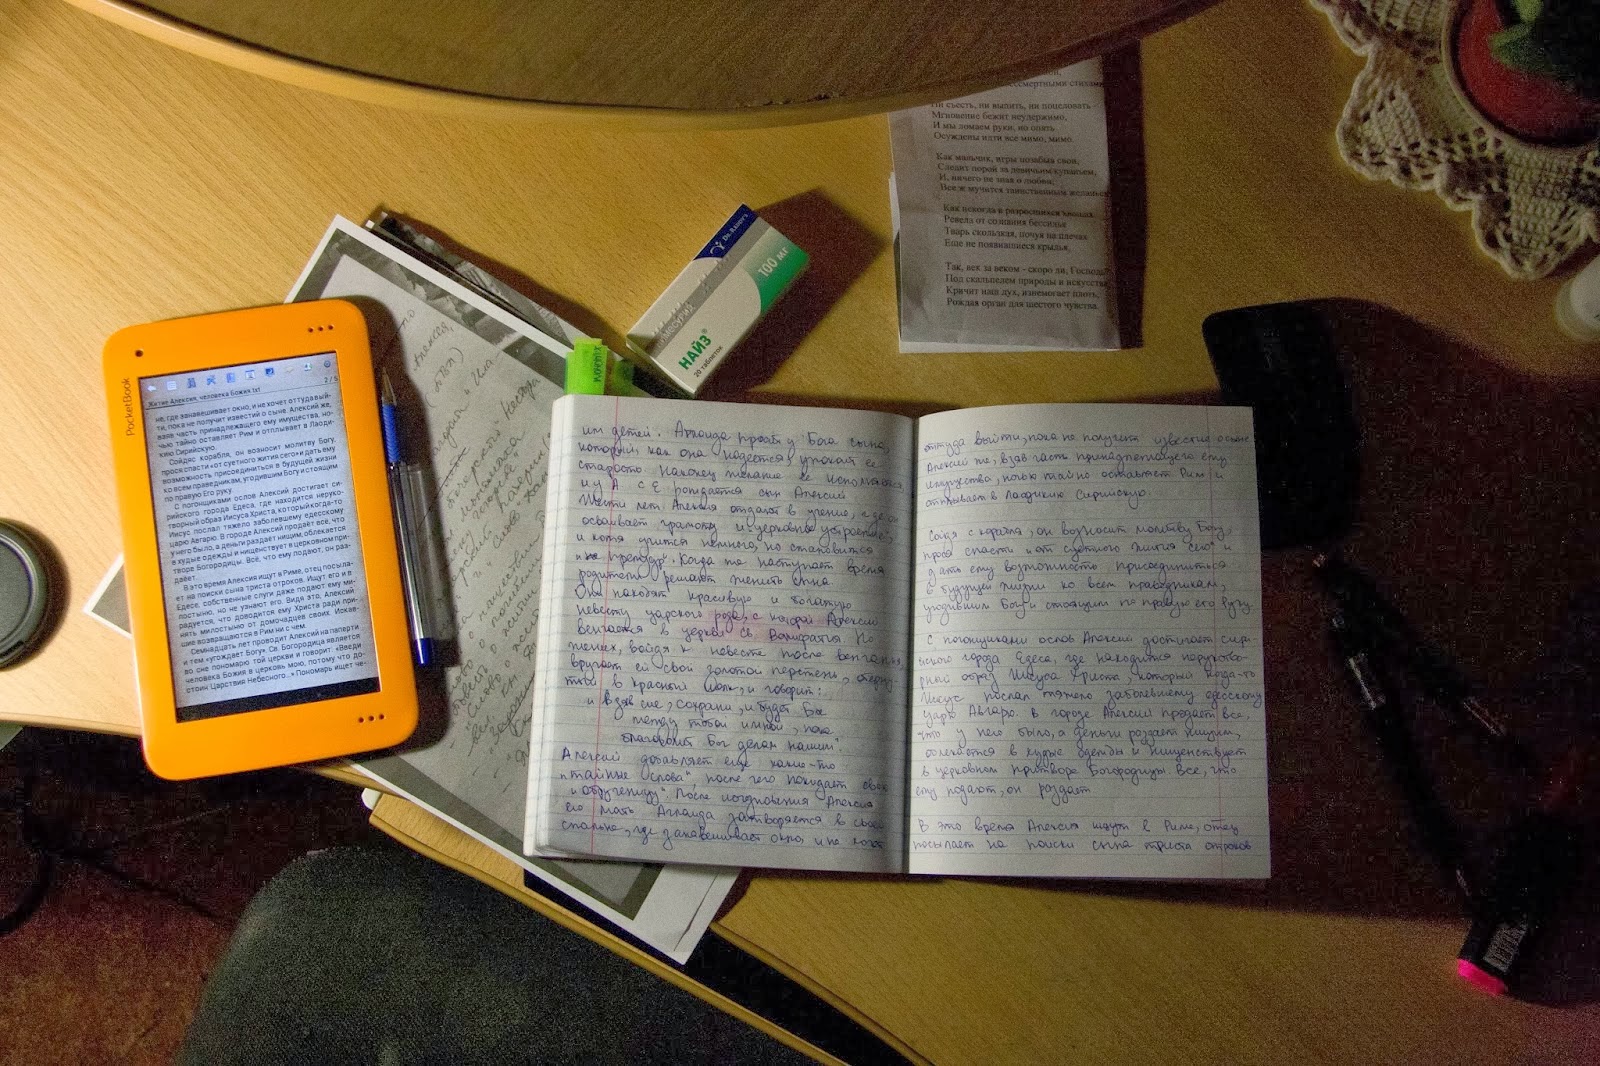 PocketBook
2 / 5
Житие Алексия, человека Божия.txt
не, где занавешивает окно, и не хочет оттуда вый-
ти, пока не получит известий о сыне. Алексий же,
взяв часть принадлежащего ему имущества, но-
чью тайно оставляет Рим и отплывает в Лаоди-
кию Сирийскую.
Сойдя с корабля, он возносит молитву Богу,
прося спасти «от суетного жития сего» и дать ему
возможность присоединиться в будущей жизни
ко всем праведникам, угодившим Богу и стоящим
по правую Его руку.
С погонщиками ослов Алексий достигает си-
рийского города Едеса, где находится неруко-
творный образ Иисуса Христа, который когда-то
Иисус послал тяжело заболевшему едесскому
царю Авгарю. В городе Алексий продаёт всё, что
у него было, а деньги раздаёт нищим, облекается
в худые одежды и нищенствует в церковном при-
творе Богородицы. Всё, что ему подают, он раз-
даёт.
В это время Алексия ищут в Риме, отец посыла-
ет на поиски сына триста отроков. Ищут его и в
Едесе, собственные слуги даже подают ему ми-
лостыню, но не узнают его. Видя это, Алексий
радуется, что доводится ему Христа ради при-
нять милостыню от домочадцев своих. Искав-
шие возвращаются в Рим ни с чем.
Семнадцать лет проводит Алексий на паперти
и тем «угождает Богу». Св. Богородица является
во сне пономарю той церкви и говорит: «Введи
человека Божия в церковь мою, потому что до-
стоин Царствия Небесного...» Пономарь ищет че-
Dr. Reddy's
100 мг
НАЙЗ®
20 таблеток
бессмертными стихами
Ни съесть, ни выпить, ни поцеловать -
Мгновение бежит неудержимо,
И мы ломаем руки, но опять
Осуждены идти все мимо, мимо.
Как мальчик, игры позабыв свои,
Следит порой за девичьим купаньем,
И, ничего не зная о любви,
Все ж мучится таинственным желаньем
Как некогда в разросшихся хвощах
Ревела от сознания бессилья
Тварь скользкая, почуя на плечах
Еще не появившиеся крылья,
Так, век за веком - скоро ли, Господь?
Под скальпелем природы и искусства
Кричит наш дух, изнемогает плоть,
Рождая орган для шестого чувства.
им детей. Аглаида просит у Бога сына,
который, как она надеется, упокоит её
старость. Наконец желание её исполняется
и у А с Е рождается сын Алексий
Шести лет Алексия отдают в учение, где он
осваивает грамоту и церковное устроение,
и хотя учится немного, но становится
премудр". Когда же наступает время
родители решают женить сына.
Они находят красивую и богатую
невесту царского рода, с которой Алексий
венчается в церкви Св. Вонифатия Но
жених, войдя к невесте после венчания,
вручает ей свой золотой перстень,
в красный шёлк, и говорит:
и взяв сие, сохрани, и будет Бог
между тобою и мною, пока
благоволит Бог делам нашим".
Алексий добавляет ещё какие-то
"тайные слова" после чего покидает свою
"обручницу". После исчезновения Алексия
его мать Аглаида затворяется в своей
спальне, где занавешивает окно, и не хочет
оттуда выйти, пока не получит известие о сыне
Алексий же, взяв часть принадлежащего ему
имущества, ночью тайно оставляет Рим и
отплывает в Лаодикию Сирийскую.
Сойдя с корабля, он возносит молитву Богу,
прося спасти "от суетного жития сего" и
дать ему возможность присоединиться
в будущей жизни ко всем праведникам,
угодившим Богу и стоящим по правую его руку.
С погонщиками ослов Алексий достигает сири-
йского города Едеса, где находится нерукотво-
рный образ Иисуса Христа, который когда-то
Иисус послал тяжело заболевшему едесскому
царю Авгарю. В городе Алексий продаёт все,
что у него было, а деньги раздаёт нищим,
облекается в худые одежды и нищенствует
в церковном притворе Богородицы Всё, что
ему подают, он раздаёт
В это время Алексия ищут в Риме, отец
посылает на поиски сына триста отроков